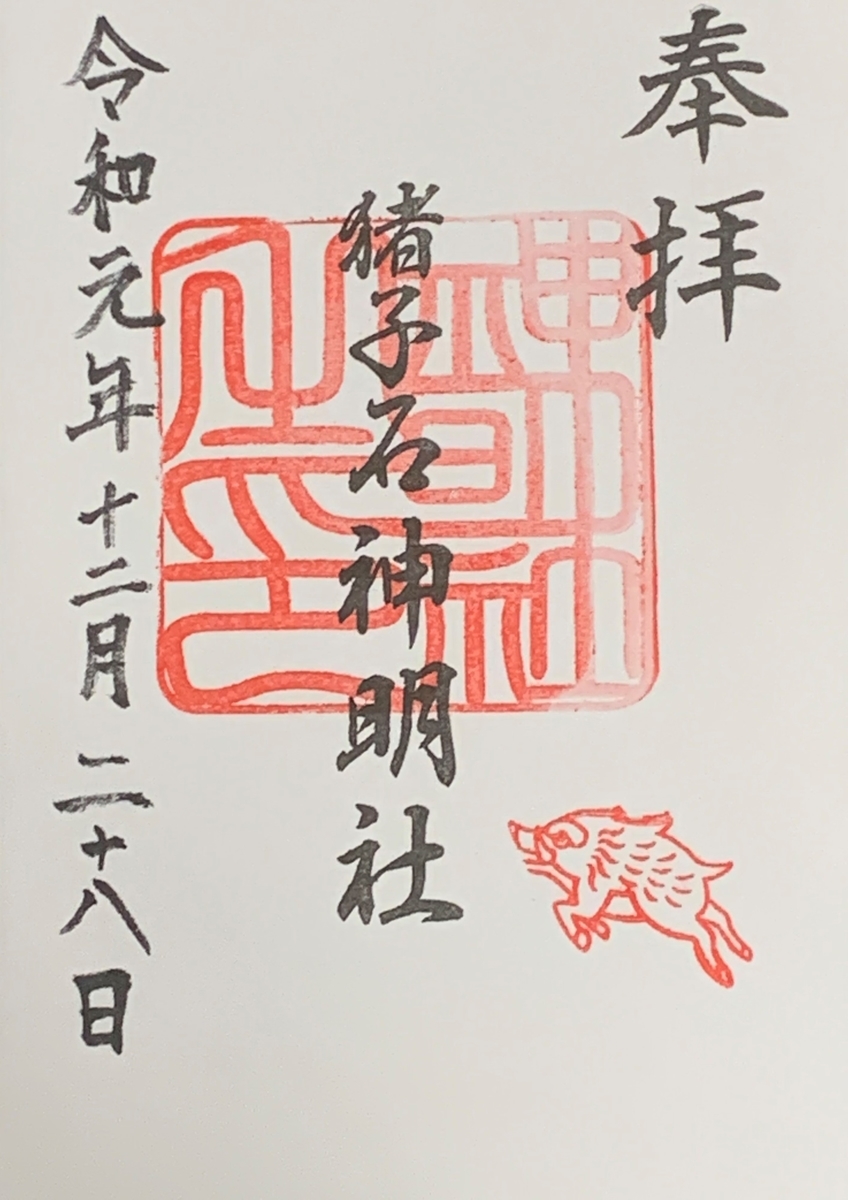 奉拝
猪子石神明社
令和元年十二月二十八日